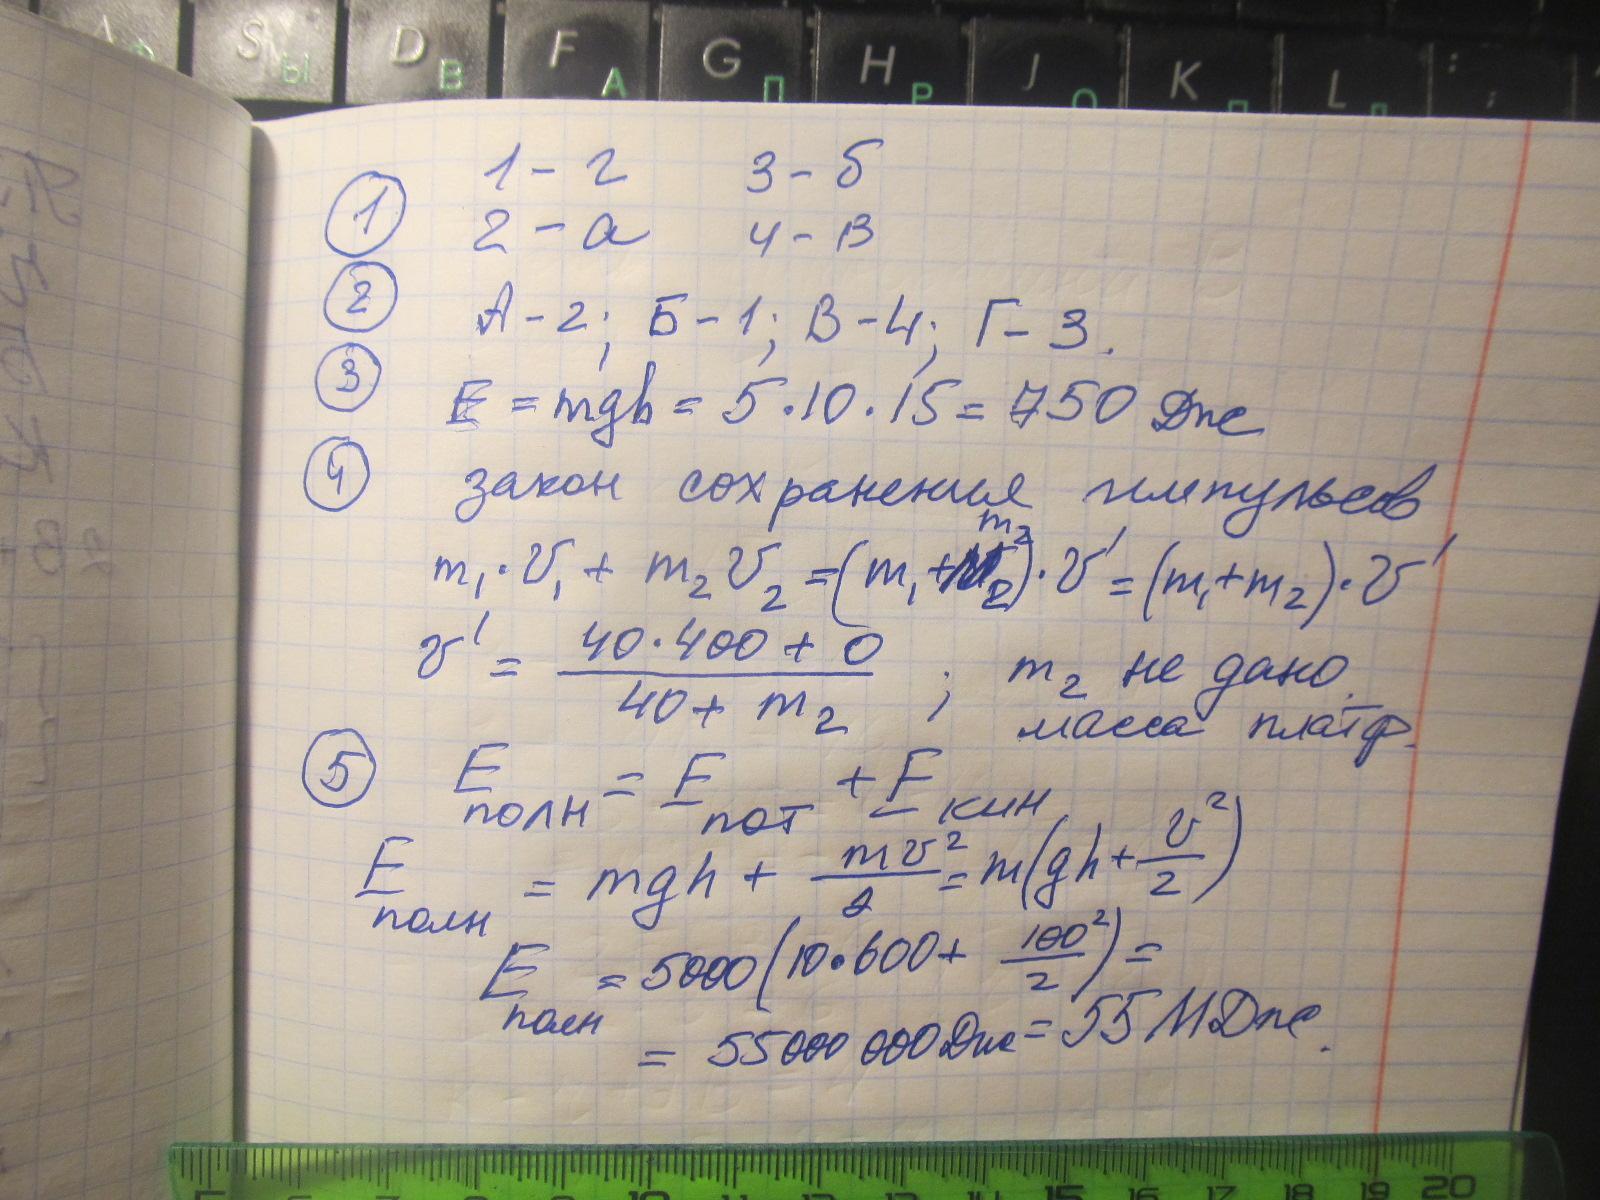 A Ф S Ы D В F А G П H Р J О K Л L Д : ;
1 - г 3 - б
① 2 - а 4 - в
② А - 2; Б - 1; В - 4; Г - 3.
③ E = mgh = 5·10·15 = 750 Дж
④ закон сохранения импульсов
m₁·v₁ + m₂v₂ = (m₁+m₂)·v' = (m₁+m₂)·v'
v' = (40·400 + 0)/(40 + m₂) ; m₂ не дано.
масса платф.
⑤ Eполн = Eпот + Eкин
Eполн = mgh + mv²/2 = m(gh + v²/2)
Eполн = 5000(10·600 + 100²/2) =
= 55000 000 Дж = 55 МДж.
10 11 12 13 14 15 16 17 18 19 20